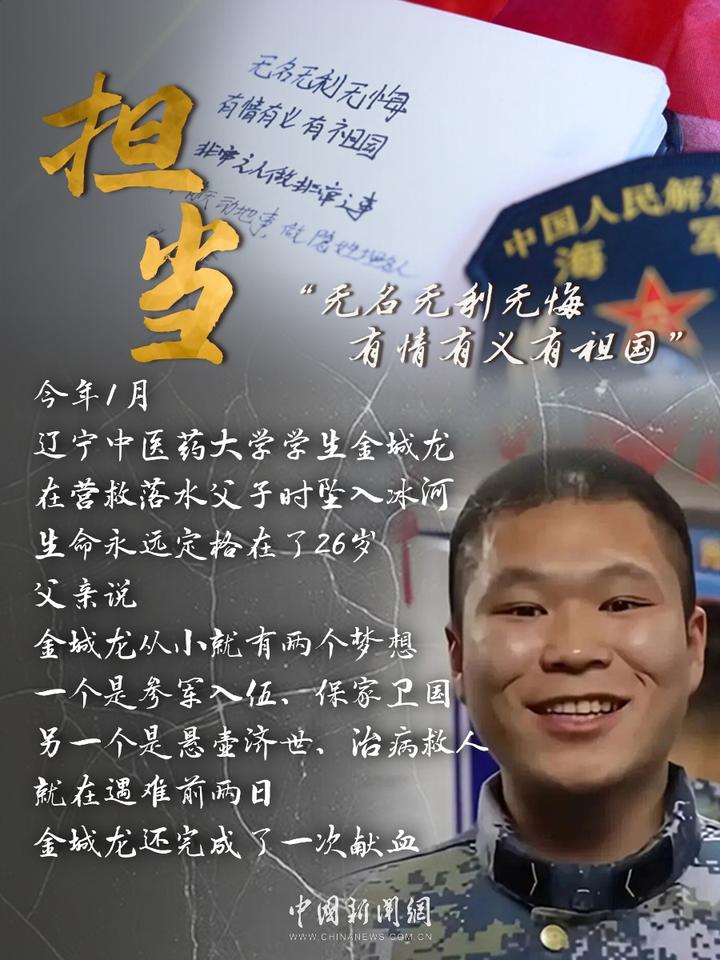 无名无利无悔
有情有义有祖国
非常之人做非常之事
动地事，做隐姓埋名人
担
当
中国人民解放
海军
“无名无利无悔
有情有义有祖国”
今年1月
辽宁中医药大学学生金城龙
在营救落水父子时坠入冰河
生命永远定格在了26岁
父亲说
金城龙从小就有两个梦想
一个是参军入伍、保家卫国
另一个是悬壶济世、治病救人
就在遇难前两日
金城龙还完成了一次献血
中國新聞網
WWW.CHINANEWS.COM.CN